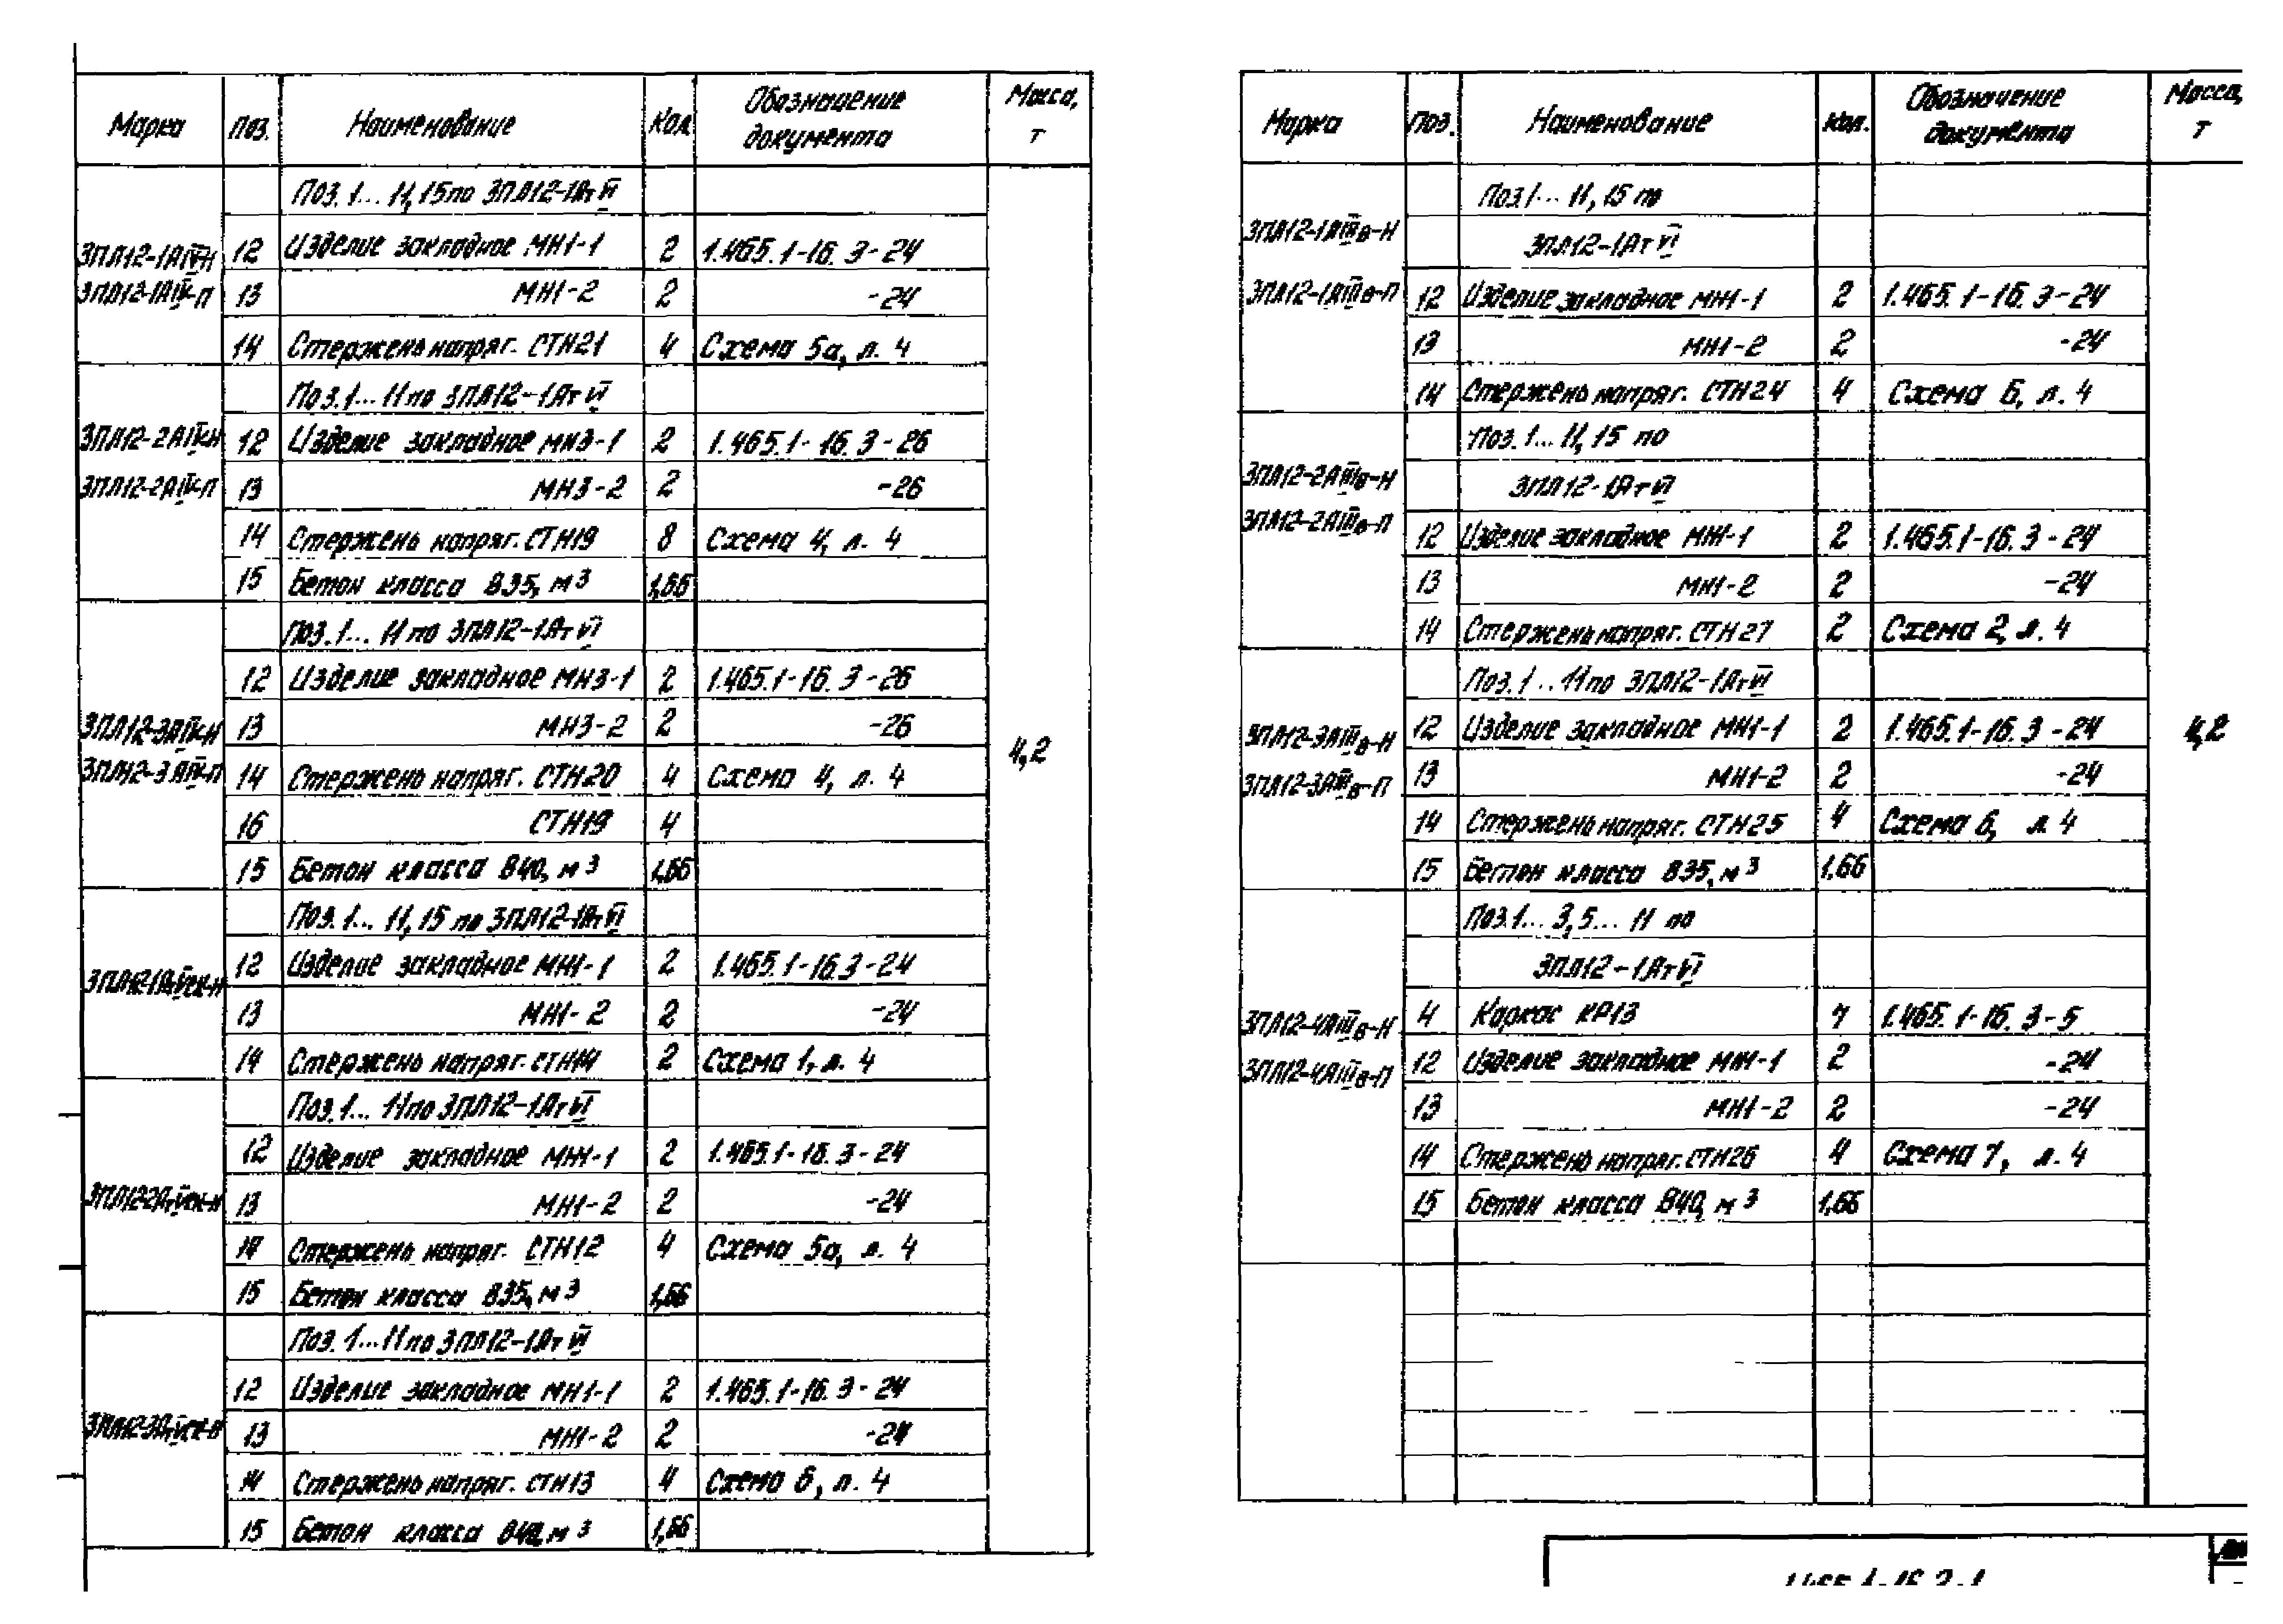 Марка Поз. Наименование Кол Обозначение документа Масса, т
Поз. 1... 11, 15 по 3ПЛ12-1АтVI
3ПЛ12-1АIV-Н 12 Изделие закладное МН1-1 2 1.465.1-16. 3-24
3ПЛ12-1АIV-П 13 МН1-2 2 -24
14 Стержень напряг. СТН21 4 Схема 5а, л. 4
Поз. 1... 11 по 3ПЛ12-1АтVI
3ПЛ12-2АIV-Н 12 Изделие закладное МН3-1 2 1.465.1-16. 3-26
3ПЛ12-2АIV-П 13 МН3-2 2 -26
14 Стержень напряг. СТН19 8 Схема 4, л. 4
15 Бетон класса В35, м³ 1,66
Поз. 1... 11 по 3ПЛ12-1АтVI
12 Изделие закладное МН3-1 2 1.465.1-16. 3-26
3ПЛ12-3АIV-Н 13 МН3-2 2 -26
4,2
3ПЛ12-3АIV-П 14 Стержень напряг. СТН20 4 Схема 4, л. 4
16 СТН19 4
15 Бетон класса В40, м³ 1,66
Поз. 1... 11, 15 по 3ПЛ12-1АтVI
3ПЛ12-1АтVск-Н 12 Изделие закладное МН1-1 2 1.465.1-16. 3-24
13 МН1-2 2 -24
14 Стержень напряг. СТН14 2 Схема 1, л. 4
Поз. 1... 11 по 3ПЛ12-1АтVI
12 Изделие закладное МН1-1 2 1.465.1-16. 3-24
3ПЛ12-2АтVск-Н 13 МН1-2 2 -24
14 Стержень напряг. СТН12 4 Схема 5а, л. 4
15 Бетон класса В35, м³ 1,66
Поз. 1... 11 по 3ПЛ12-1АтVI
12 Изделие закладное МН1-1 2 1.465.1-16. 3-24
3ПЛ12-3АтVск-Н 13 МН1-2 2 -24
14 Стержень напряг. СТН13 4 Схема 6, л. 4
15 Бетон класса В40, м³ 1,66
Марка Поз. Наименование Кол. Обозначение документа Масса, т
Поз. 1... 11, 15 по
3ПЛ12-1АIIIв-Н 3ПЛ12-1АтVI
3ПЛ12-1АIIIв-П 12 Изделие закладное МН1-1 2 1.465.1-16. 3-24
13 МН1-2 2 -24
14 Стержень напряг. СТН24 4 Схема 6, л. 4
Поз. 1... 11, 15 по
3ПЛ12-2АIIIв-Н 3ПЛ12-1АтVI
3ПЛ12-2АIIIв-П 12 Изделие закладное МН1-1 2 1.465.1-16. 3-24
13 МН1-2 2 -24
14 Стержень напряг. СТН27 2 Схема 2, л. 4
Поз. 1... 11 по 3ПЛ12-1АтVI
3ПЛ12-3АIIIв-Н 12 Изделие закладное МН1-1 2 1.465.1-16. 3-24 4,2
3ПЛ12-3АIIIв-П 13 МН1-2 2 -24
14 Стержень напряг. СТН25 4 Схема 6, л 4
15 Бетон класса В35, м³ 1,66
Поз. 1... 3, 5... 11 по
3ПЛ12-1АтVI
3ПЛ12-4АIIIв-Н 4 Каркас КР13 7 1.465.1-16. 3-5
3ПЛ12-4АIIIв-П 12 Изделие закладное МН1-1 2 -24
13 МН1-2 2 -24
14 Стержень напряг. СТН26 4 Схема 7, л. 4
15 Бетон класса В40, м³ 1,66